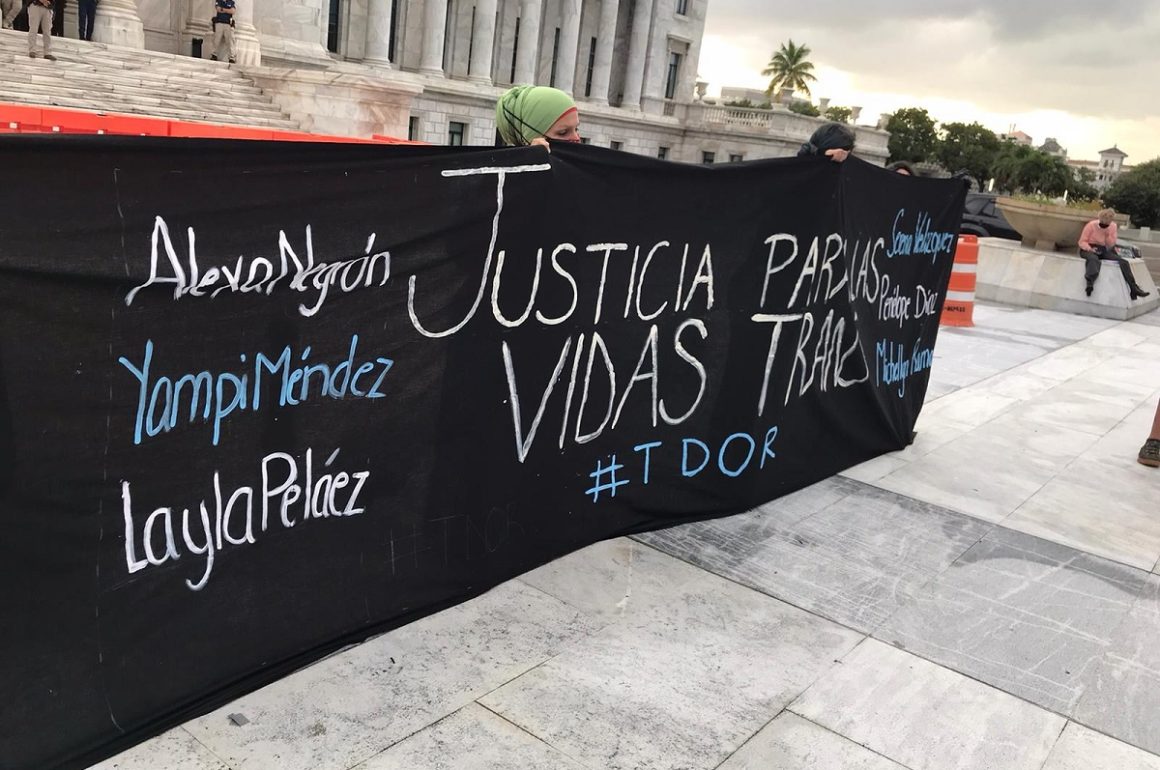 Alexa Negrón
Yampi Méndez
Layla Peláez
JUSTICIA PARA LAS
VIDAS TRANS
#TDOR
Serena Velázquez
Penélope Díaz
Michellyn